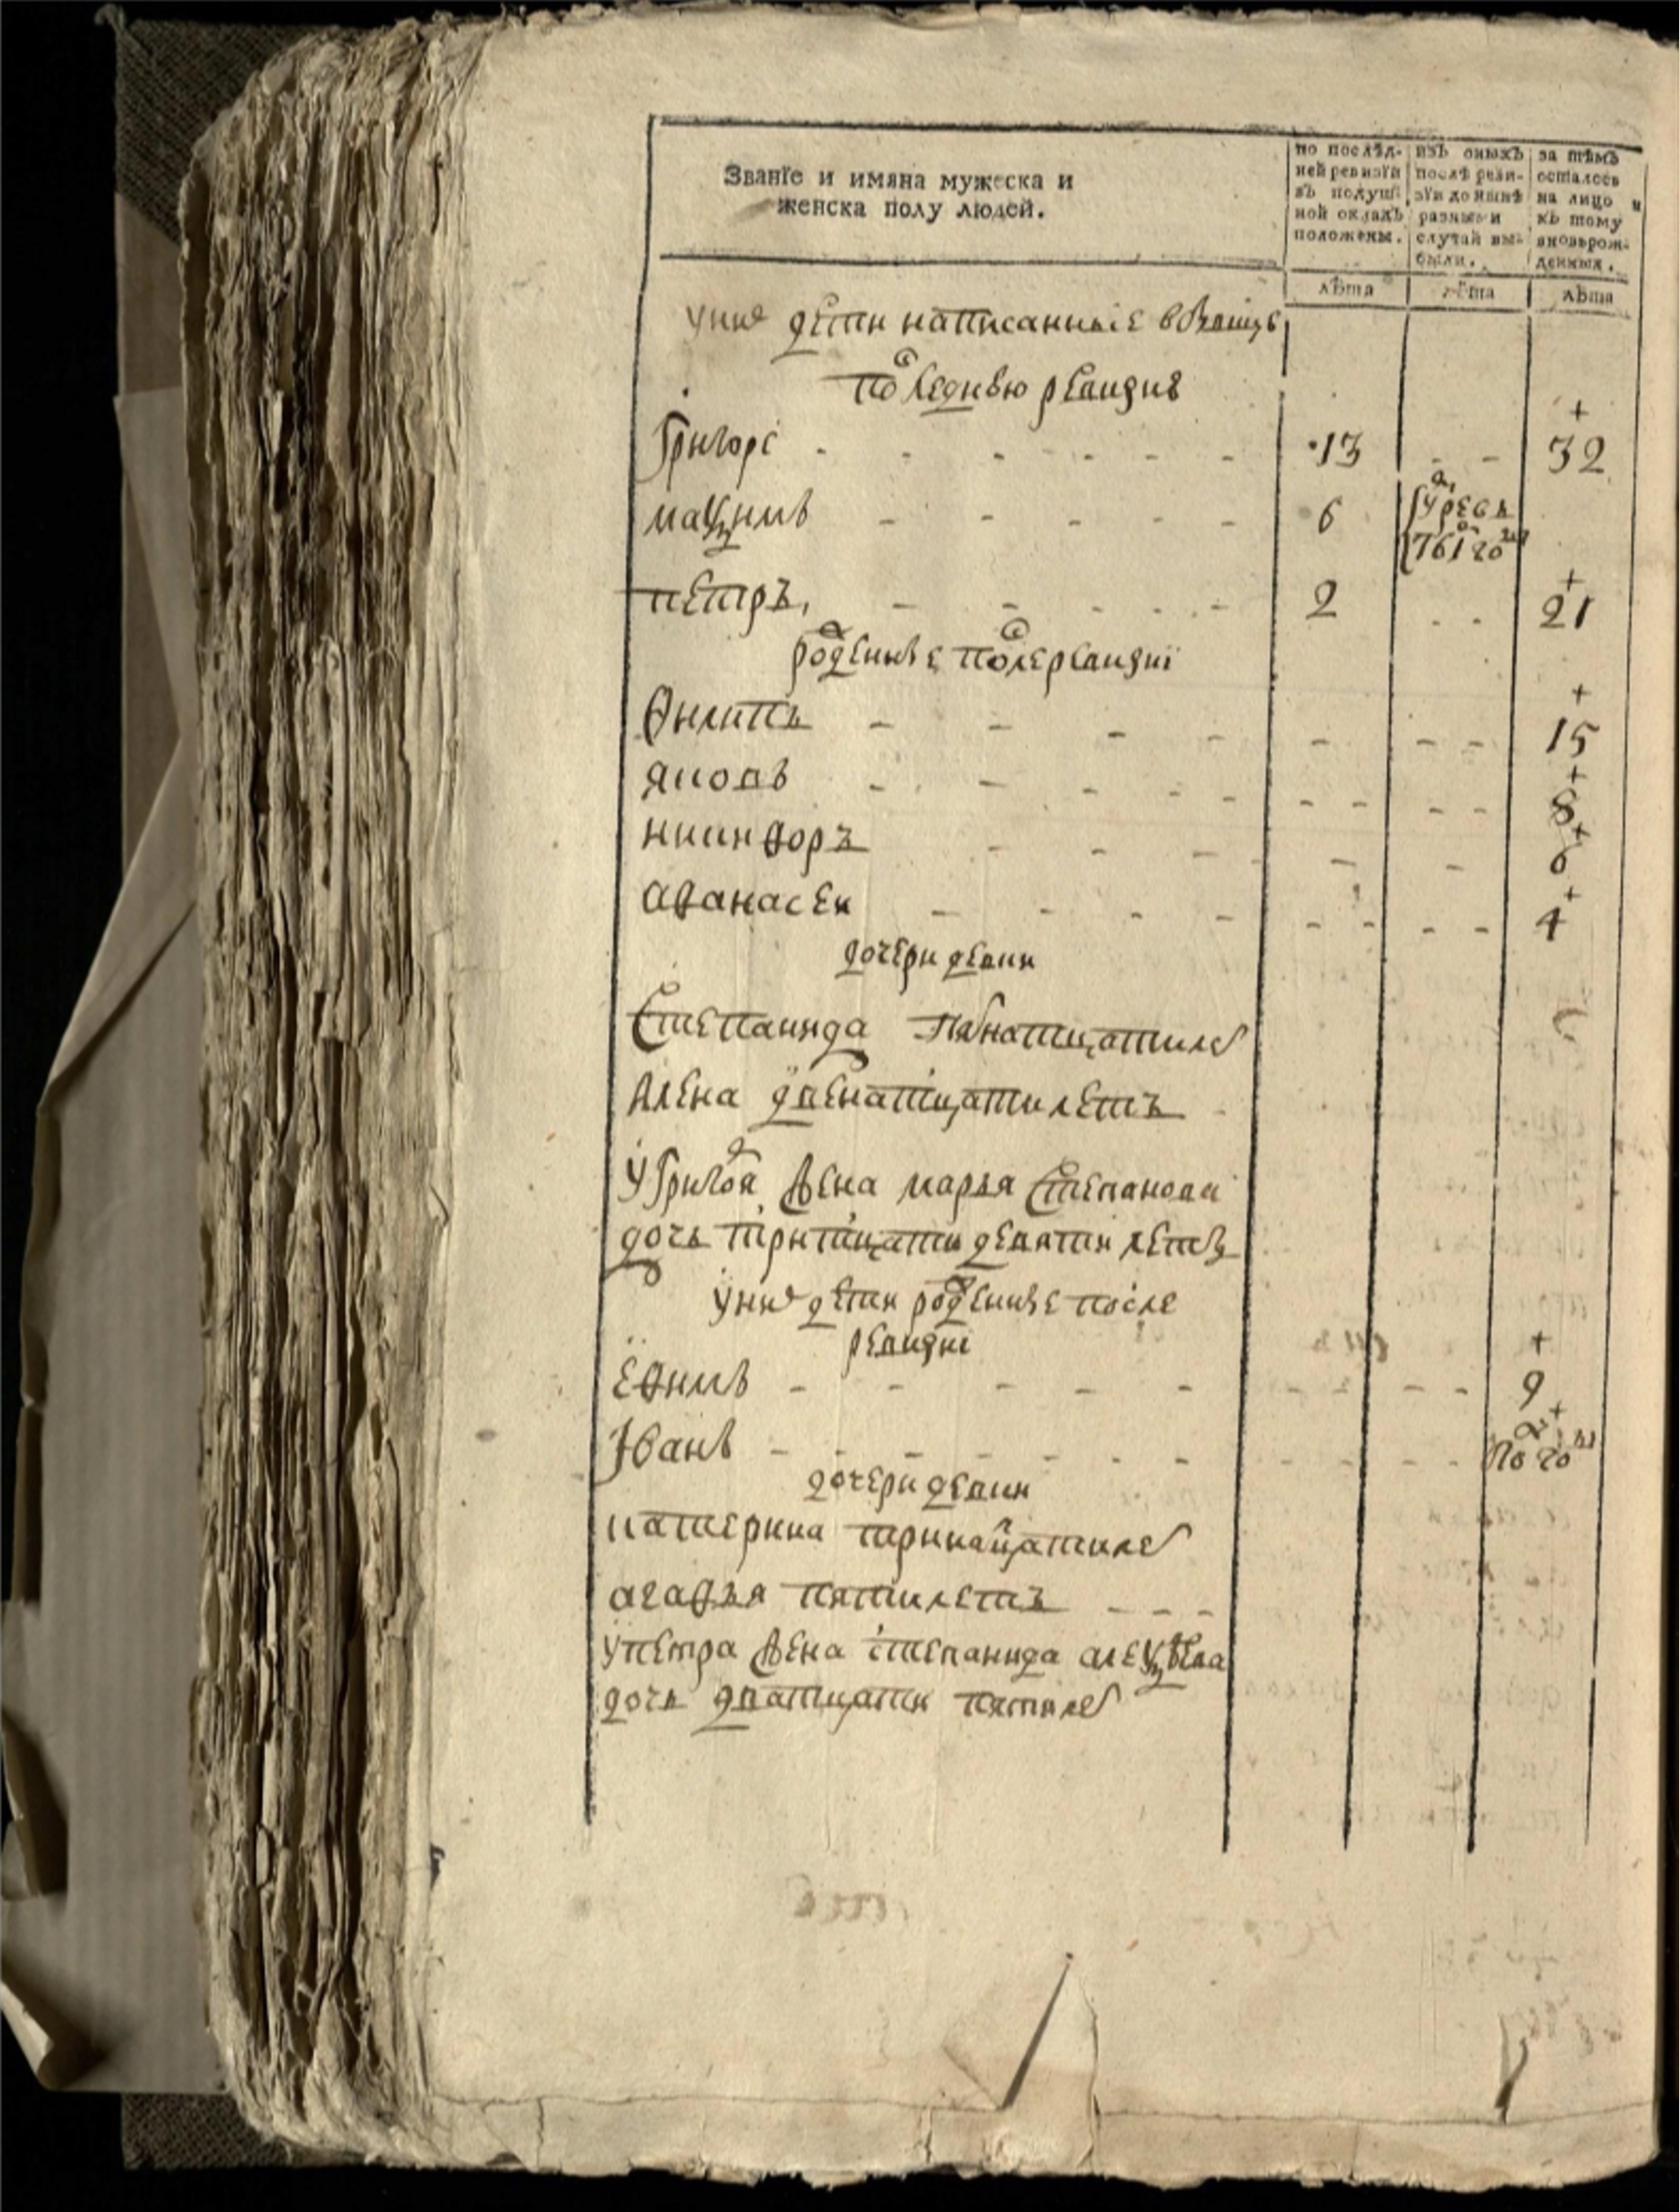 Званїе и имяна мужеска и
женска полу людей.
по послѣд-
ней ревизїи
въ подуш-
ной окладъ
положены.
изъ оныхъ
послѣ реви-
зїи до нынѣ
разными
случаи вы-
были.
за тѣмъ
осталось
на лицо и
къ тому
вновьрож-
денныхъ.
лѣта лѣта лѣта
уних дети написанные в
последнюю ревизию
Григореи 13 - - 32
максимъ 6 умре в 761 году
петръ 2 - - 21
рожденные после ревизиї
Филипъ - - - 15
яковъ - - - 8
никифоръ - - - 6
афанасеи - - - 4
дочери девки
Степанида пятнатцати летъ
Алена двенатцати летъ
у Григорья жена марья Степанова
дочь тритцати девяти летъ
уних дети рожденные после
ревизиї
ефимъ - - - 9
Iванъ - - - по году
дочери девки
катерина тринатцати летъ
агафья пяти летъ
упетра жена степанида алексѣева
дочь дватцати пяти летъ